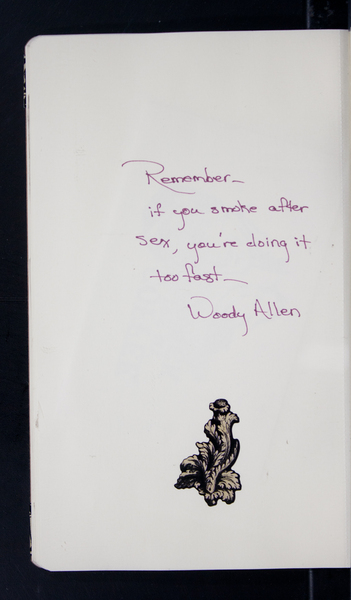 Remember—
if you smoke after
sex, you're doing it
too fast—
Woody Allen